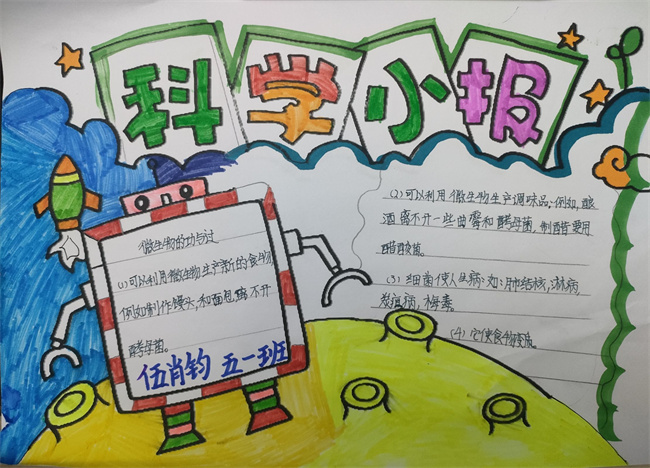 科学小报
微生物的功与过
(1)可以利用微生物生产新的食物
例如制作馒头,和面包离不开
酵母菌。
伍肖钧 五一班
(2)可以利用微生物生产调味品。例如,酿
酒离不开一些曲霉和酵母菌,制醋要用
醋酸菌。
(3)细菌使人生病:如:肺结核,淋病,
炭疽病,梅毒。
(4)它使食物变质。